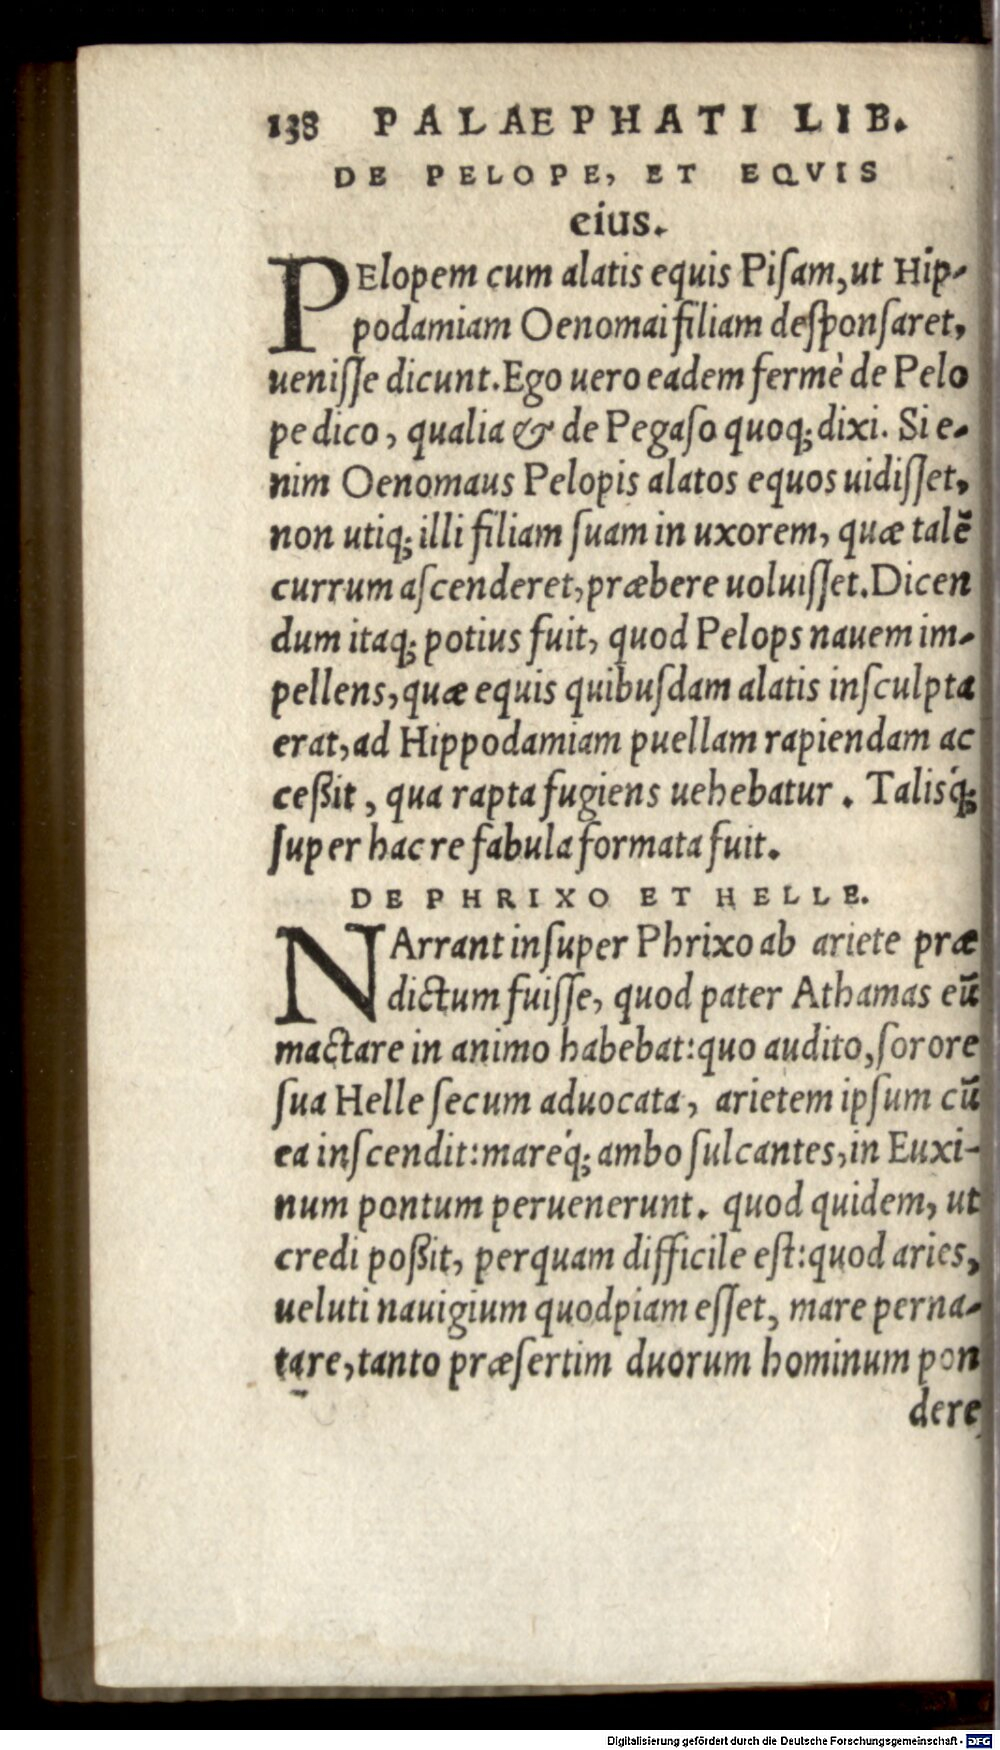 138 PALAEPHATI LIB.
DE PELOPE, ET EQVIS
eius.
PElopem cum alatis equis Piſam, ut Hip-
podamiam Oenomai filiam deſponſaret,
ueniſſe dicunt. Ego uero eadem fermè de Pelo
pe dico, qualia & de Pegaſo quoq; dixi. Si e-
nim Oenomaus Pelopis alatos equos uidiſſet,
non utiq; illi filiam ſuam in uxorem, quæ talē
currum aſcenderet, præbere uoluiſſet. Dicen
dum itaq; potius fuit, quod Pelops nauem im-
pellens, quæ equis quibuſdam alatis inſculpta
erat, ad Hippodamiam puellam rapiendam ac
ceßit, qua rapta fugiens uehebatur. Talisq́;
ſuper hac re fabula formata fuit.
DE PHRIXO ET HELLE.
NArrant inſuper Phrixo ab ariete præ
dictum fuiſſe, quod pater Athamas eū
mactare in animo habebat: quo audito, ſorore
ſua Helle ſecum aduocata, arietem ipſum cū
ea inſcendit: mareq́; ambo ſulcantes, in Euxi-
num pontum peruenerunt. quod quidem, ut
credi poßit, perquam difficile eſt: quod aries,
ueluti nauigium quodpiam eſſet, mare perna-
tare, tanto præſertim duorum hominum pon
dere
Digitalisierung gefördert durch die Deutsche Forschungsgemeinschaft - DFG